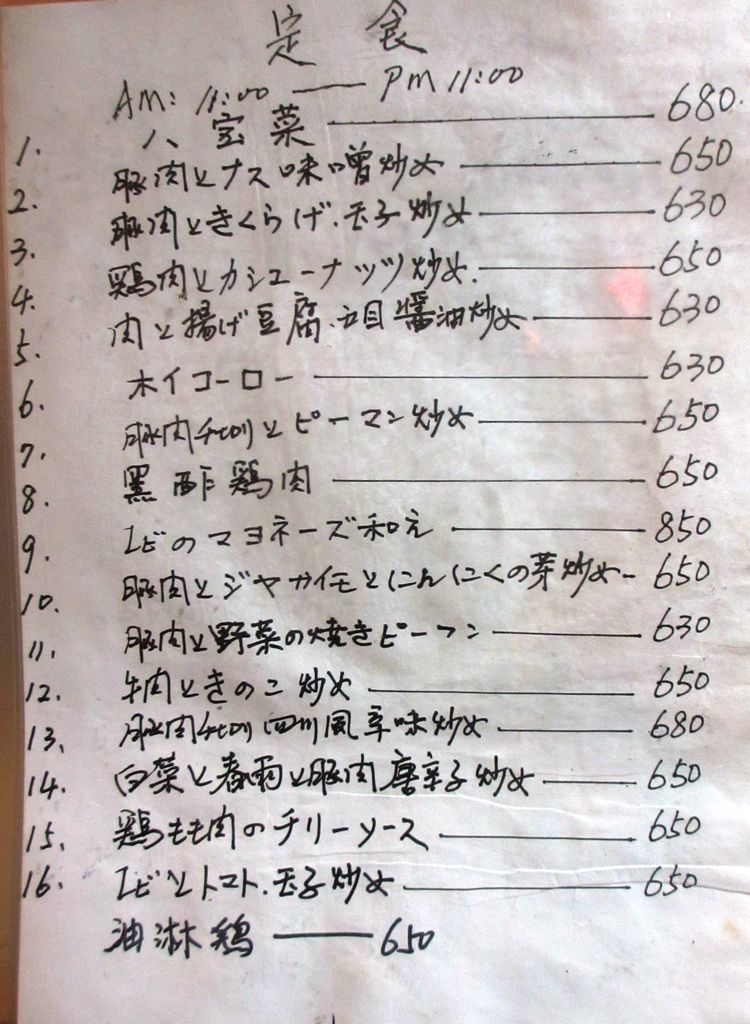 定食
AM: 11:00 —— PM 11:00
1. 八宝菜 —— 680
2. 豚肉とナス味噌炒め —— 650
3. 豚肉ときくらげ.玉子炒め —— 630
4. 鶏肉とカシューナッツ炒め. —— 650
5. 肉と揚げ豆腐.五目醤油炒め —— 630
6. ホイコーロー —— 630
7. 豚肉千切りとピーマン炒め —— 650
8. 黒酢鶏肉 —— 650
9. エビのマヨネーズ和え —— 850
10. 豚肉とジャガイモとにんにくの芽炒め — 650
11. 豚肉と野菜の焼きビーフン —— 630
12. 牛肉ときのこ炒め —— 650
13. 豚肉千切り四川風辛味炒め —— 680
14. 白菜と春雨と豚肉唐辛子炒め —— 650
15. 鶏もも肉のチリーソース —— 650
16. エビとトマト.玉子炒め —— 650
油淋鶏 —— 650